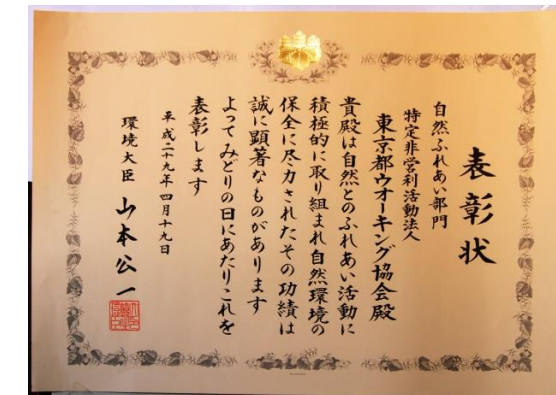 表彰状
自然ふれあい部門
特定非営利活動法人
東京都ウオーキング協会殿
貴殿は自然とのふれあい活動に
積極的に取り組まれ自然環境の
保全に尽力されたその功績は
誠に顕著なものがあります
よってみどりの日にあたりこれを
表彰します
平成二十九年四月十九日
環境大臣 山本公一